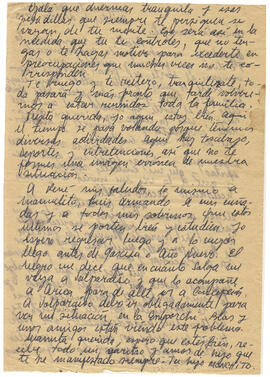 Ojalá que duermas tranquila y esas
pesadillas que siempre te persiguen se
vayan de tu mente. Eso será así en la
medida que tu te controles, que no ten-
gas o te hagas motivos para
preocupaciones que muchas veces no te co-
rresponden.
Te pido y te reitero, tranquilízate, to-
do pasará y más pronto que tarde volve-
remos a estar reunidos toda la familia.
querido, yo aquí estoy bien, aquí
el tiempo se pasa volando porque tenemos
diversas actividades. Aquí hay trabajo,
deporte y entretención, así que no te
formes una imagen errónea de nuestra
situación.
A René mis saludos, lo mismo a
Luis Armando a mi cuña-
da y a todos mis sobrinos, que estos
últimos se porten bien y estudien. Yo
espero regresar luego y a lo mejor
llego antes de pascua o Año Nuevo. El
negro me dice que en cuanto salga se
va a Valparaíso y que lo acompañe
a Arica, pero de allá
a Valparaíso debo ir obligadamente para
ver mi situación, en la Blas y
unos amigos están viendo ese problema.
Mamita querida, espero que estés bien, re-
cibe todo mi cariño y amor de hijo que
te he manifestado siempre. Tu hijo